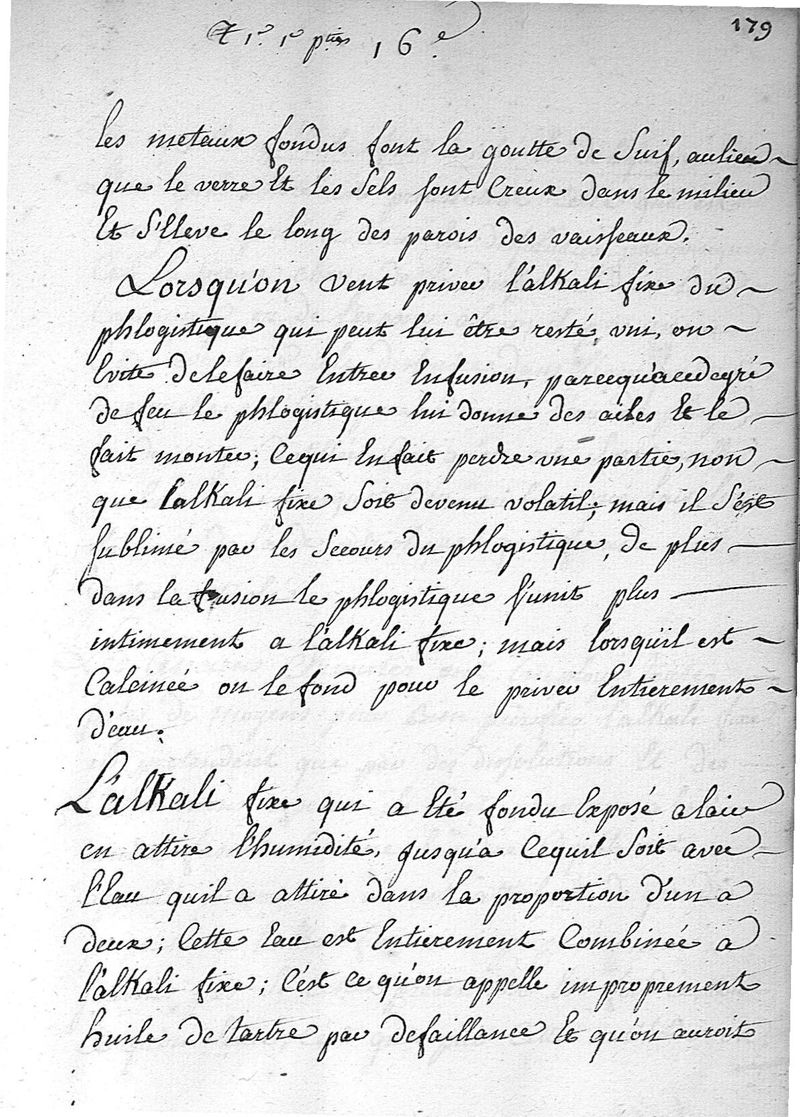 179
1e. 1e ptie 16e
les metaux fondus font la goutte de Suif, aulieu
que le verre Et les Sels sont Creux dans le milieu
Et S'Eleve le long des parois des vaisseaux.
Lorsqu'on veut priver l'alkali fixe du
phlogistique qui peut lui être resté, uni, on
Evite de le faire Entrer Enfusion, parcequ'acedegré
de feu le phlogistique lui donne des ailes Et le
fait monter; Cequi En fait perdre une partie, non
que l'alkali fixe Soit devenu volatil; mais il S'est
sublimé par les Secours du phlogistique, de plus
dans la fusion le phlogistique s'unit plus
intimement a l'alkali fixe; mais lorsqu'il est
Calciné on le fond pour le priver Entierement
d'eau.
L'alkali fixe qui a Eté fondu Exposé alair
en attire l'humidité, Jusqu'a Cequil Soit avec
l'Eau quil a attiré dans la proportion d'un a
deux; Cette Eau est Entierement Combinée a
l'alkali fixe; C'est ce qu'on appelle improprement
huile de tartre par defaillance Et qu'on auroit